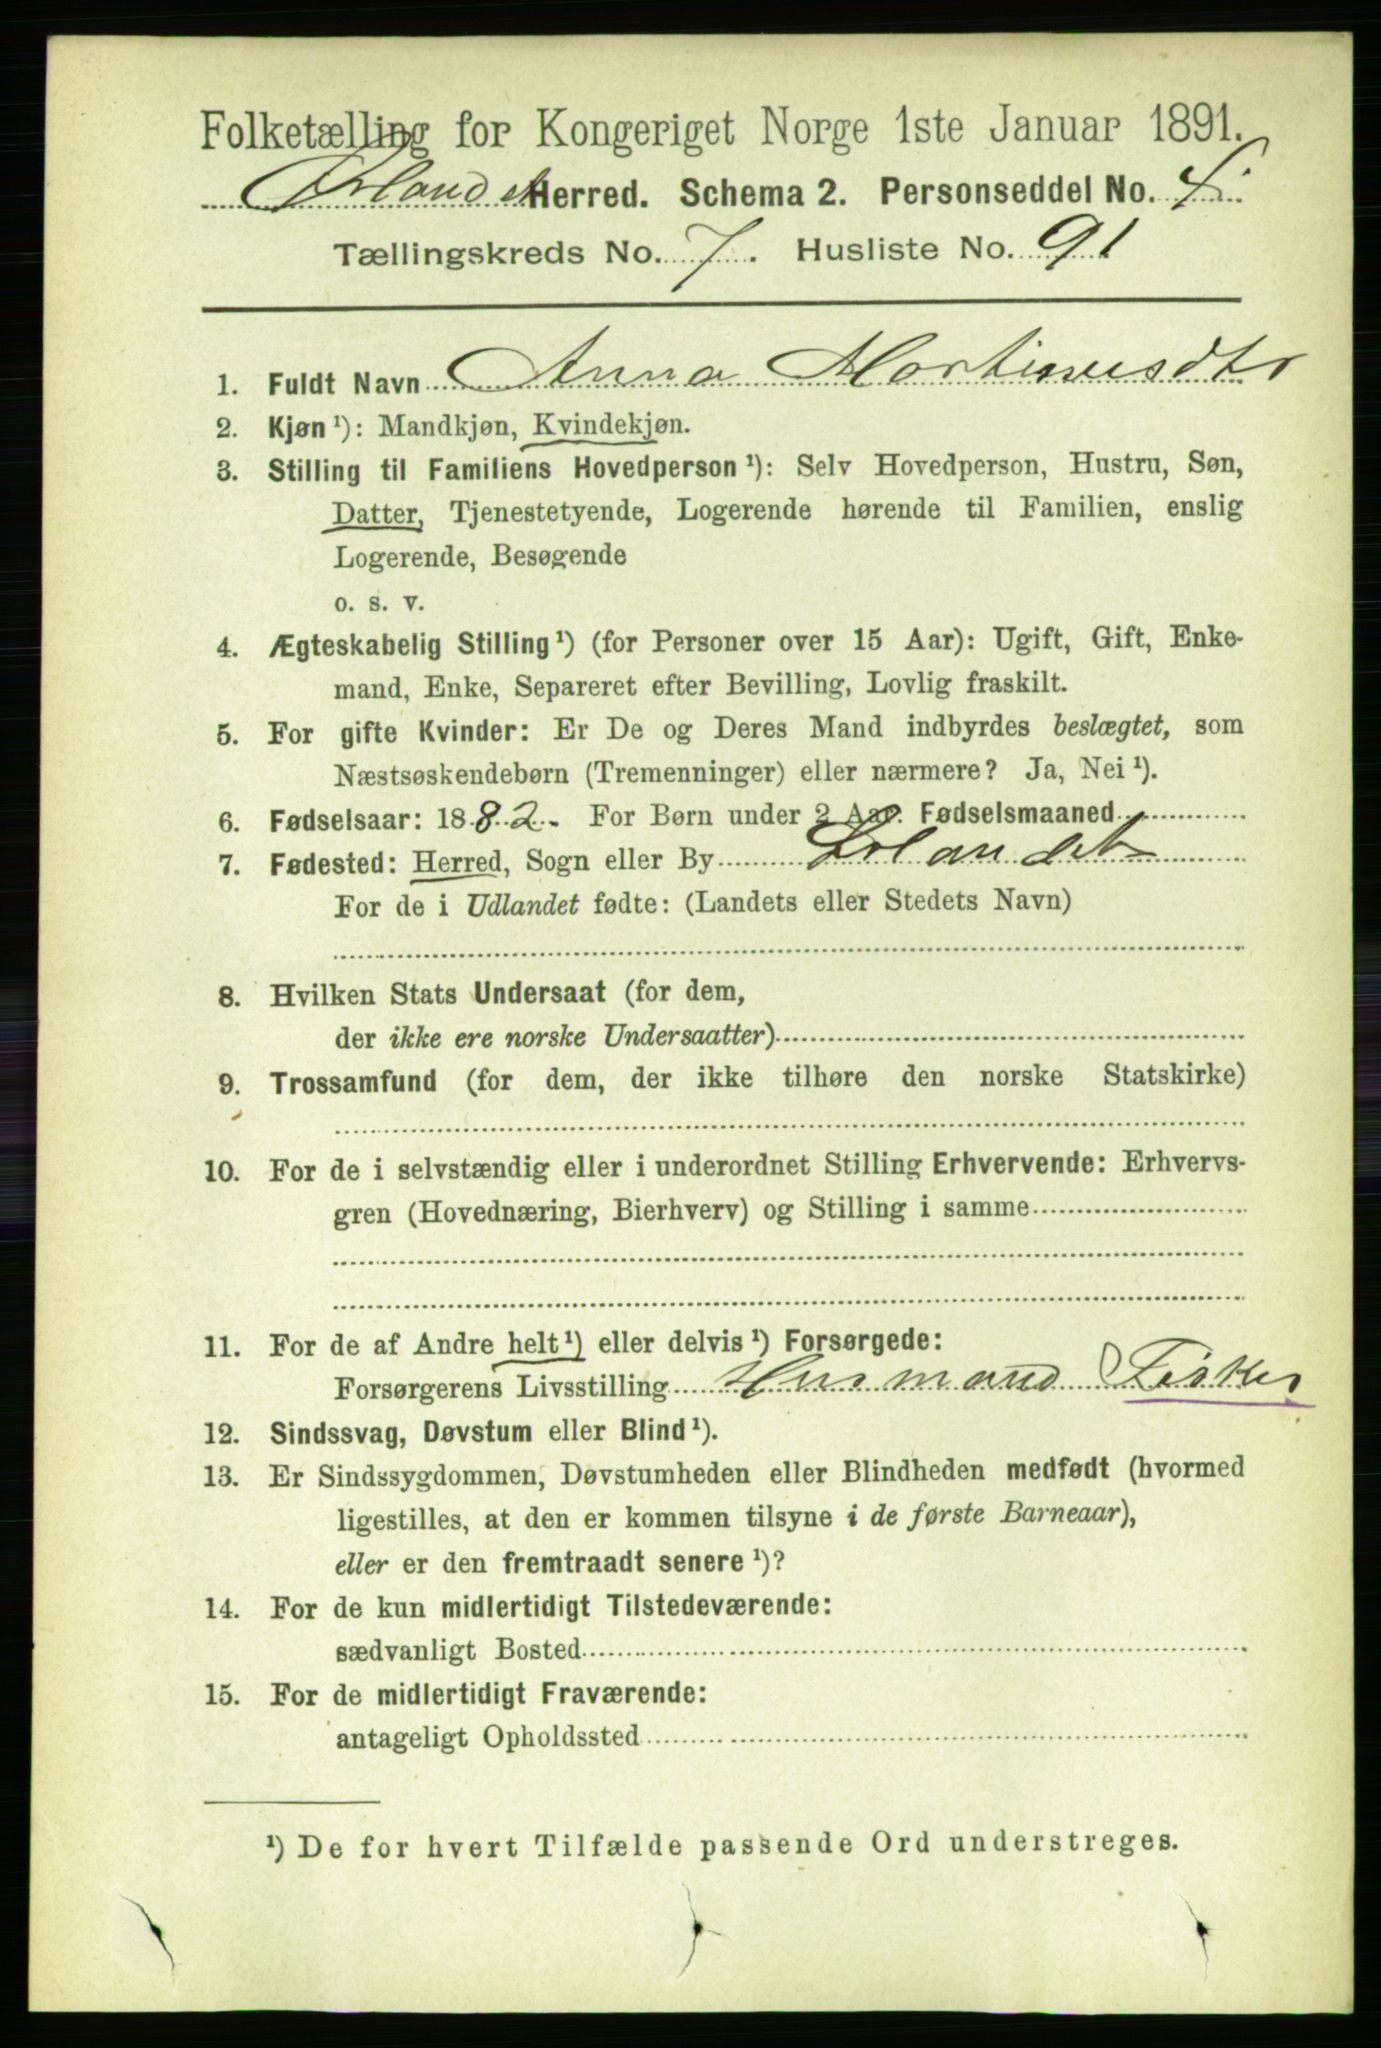 Folketælling for Kongeriget Norge 1ste Januar 1891.
Ørlandet Herred. Schema 2. Personseddel No. 4.
Tællingskreds No. 7. Husliste No. 91
1. Fuldt Navn Anna Martinusdtr
2. Kjøn ¹): Mandkjøn, Kvindekjøn.
3. Stilling til Familiens Hovedperson ¹): Selv Hovedperson, Hustru, Søn,
Datter, Tjenestetyende, Logerende hørende til Familien, enslig
Logerende, Besøgende
o. s. v.
4. Ægteskabelig Stilling ¹) (for Personer over 15 Aar): Ugift, Gift, Enke-
mand, Enke, Separeret efter Bevilling, Lovlig fraskilt.
5. For gifte Kvinder: Er De og Deres Mand indbyrdes beslægtet, som
Næstsøskendebørn (Tremenninger) eller nærmere? Ja, Nei ¹).
6. Fødselsaar: 1882. For Børn under 2 Aar. Fødselsmaaned
7. Fødested: Herred, Sogn eller By Ørlandet
For de i Udlandet fødte: (Landets eller Stedets Navn)
8. Hvilken Stats Undersaat (for dem,
der ikke ere norske Undersaatter)
9. Trossamfund (for dem, der ikke tilhøre den norske Statskirke)
10. For de i selvstændig eller i underordnet Stilling Erhvervende: Erhvervs-
gren (Hovednæring, Bierhverv) og Stilling i samme
11. For de af Andre helt ¹) eller delvis ¹) Forsørgede:
Forsørgerens Livsstilling Husmand Fisker
12. Sindssvag, Døvstum eller Blind ¹).
13. Er Sindssygdommen, Døvstumheden eller Blindheden medfødt (hvormed
ligestilles, at den er kommen tilsyne i de første Barneaar),
eller er den fremtraadt senere ¹)?
14. For de kun midlertidigt Tilstedeværende:
sædvanligt Bosted
15. For de midlertidigt Fraværende:
antageligt Opholdssted
¹) De for hvert Tilfælde passende Ord understreges.